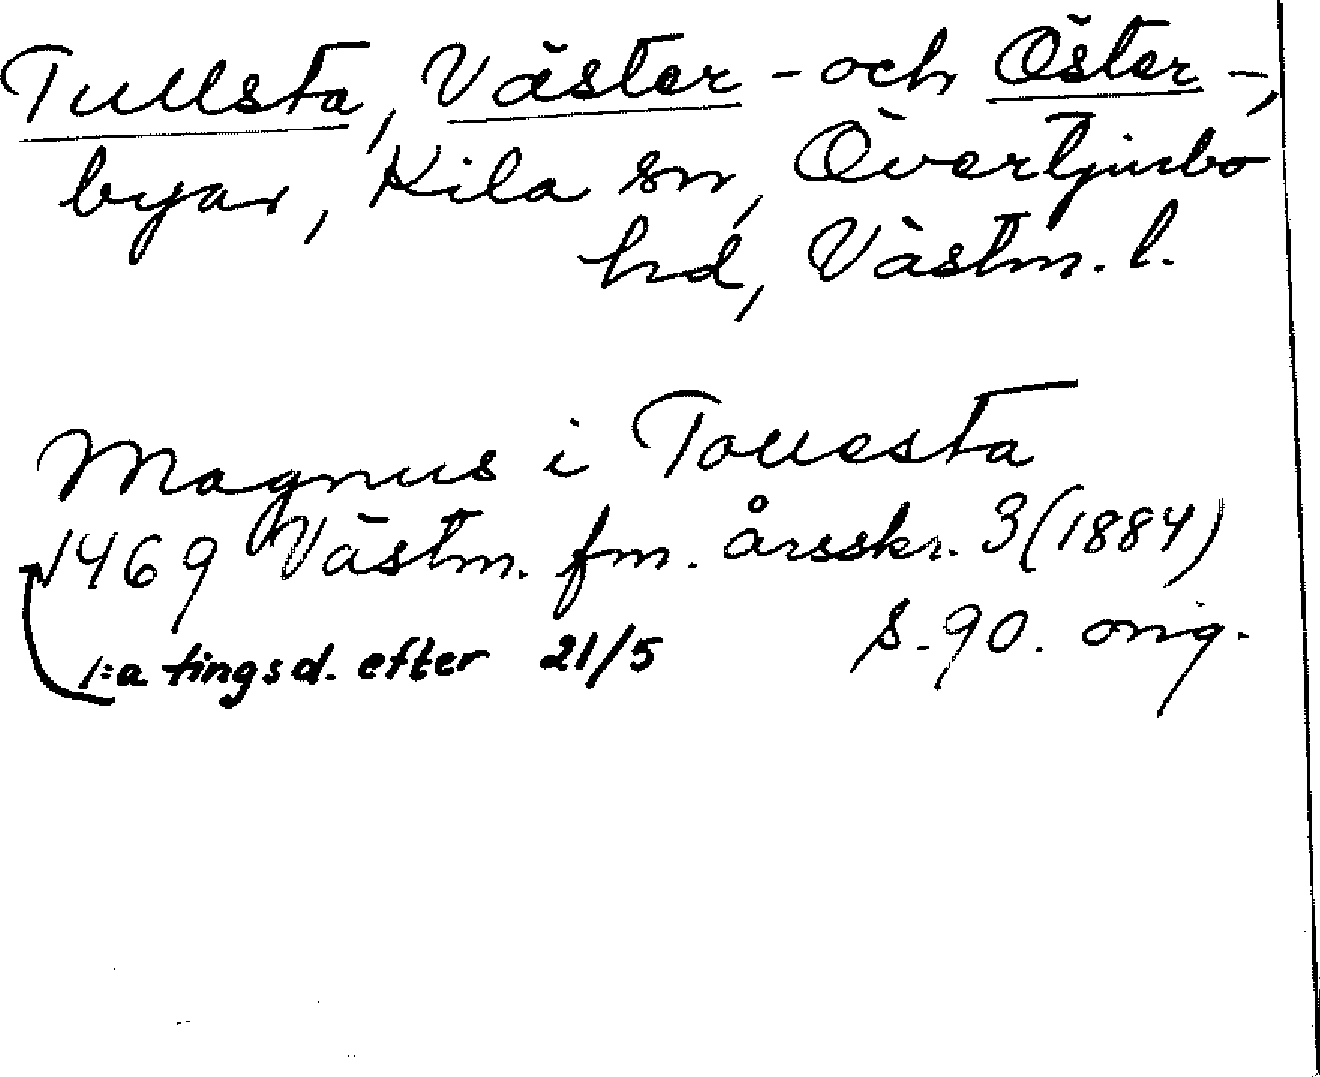 Tullsta, Väster- och Öster-,
byar, Kila sn, Övertjurbo
hd, Västm. l.
Magnus i Tollesta
1469 Västm. fm. årsskr. 3 (1884)
s. 90. orig.
1:a tingsd. efter 21/5